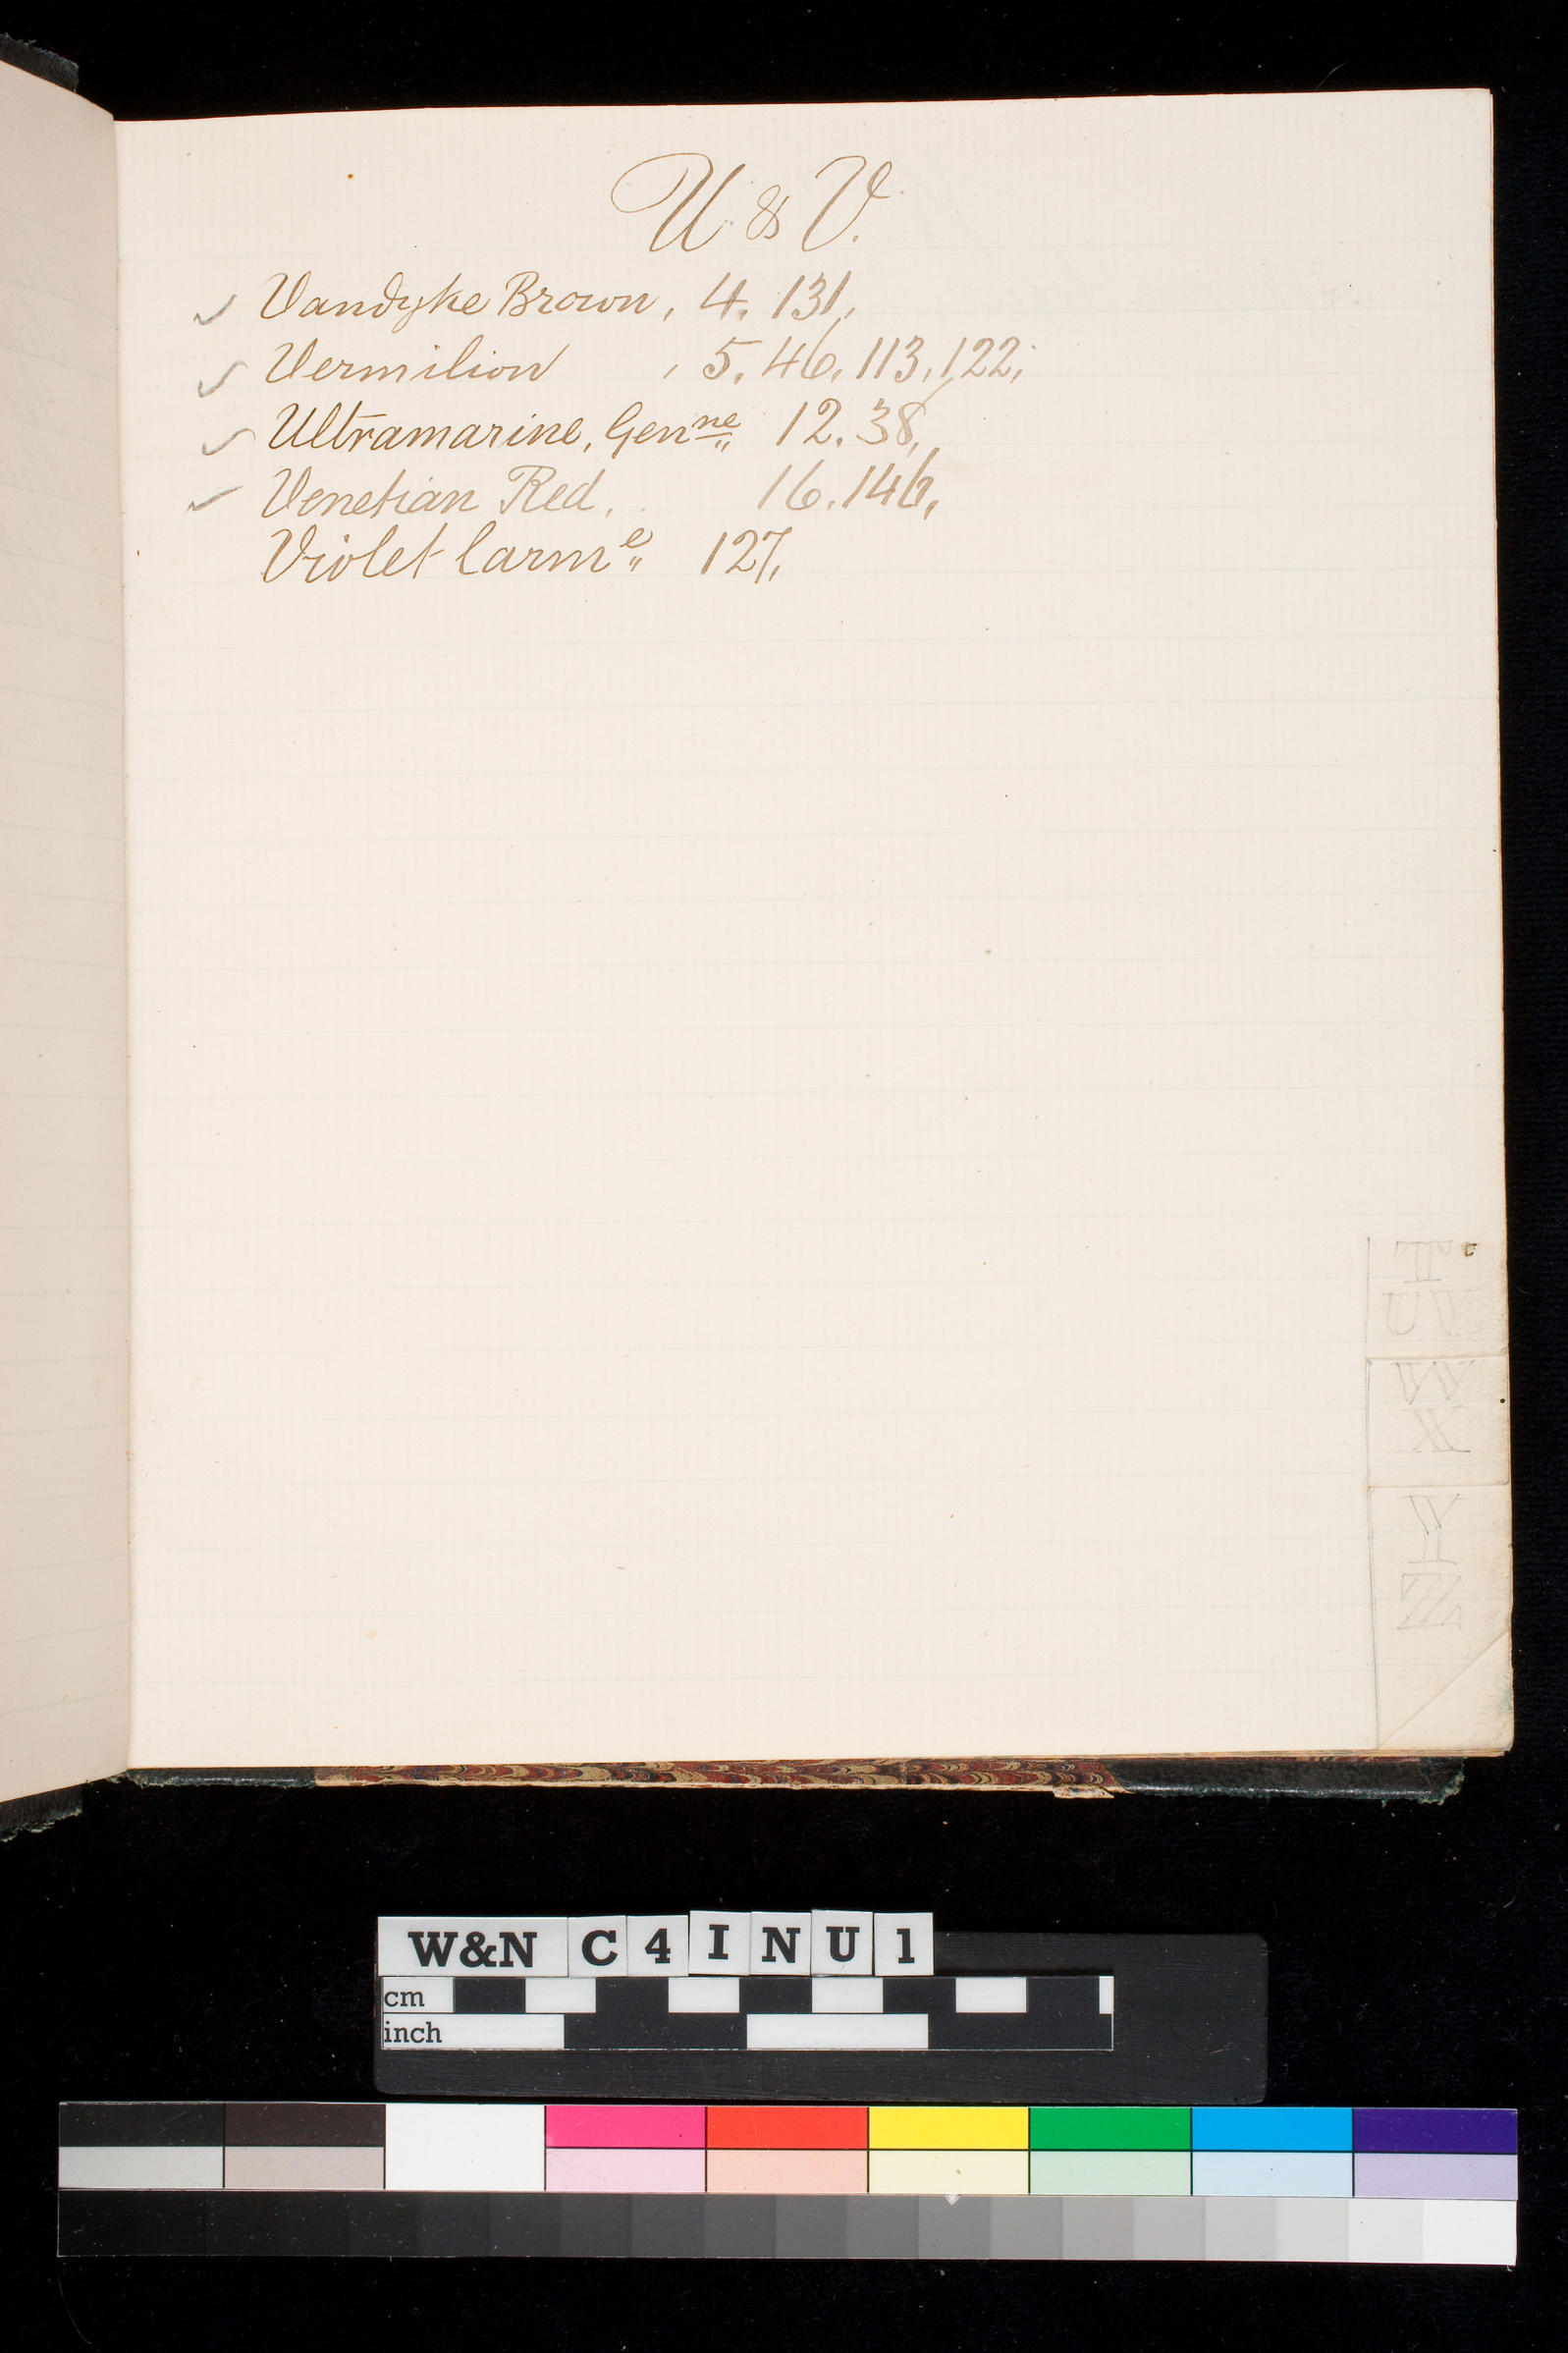 U & V.
✓ Vandyke Brown, 4. 131,
✓ Vermilion , 5. 46. 113. 122.
✓ Ultramarine, Genne 12. 38,
✓ Venetian Red, 16. 146,
Violet Carme 127,
T
UV
W
X
Y
Z
W&N C 4 I N U 1
cm
inch